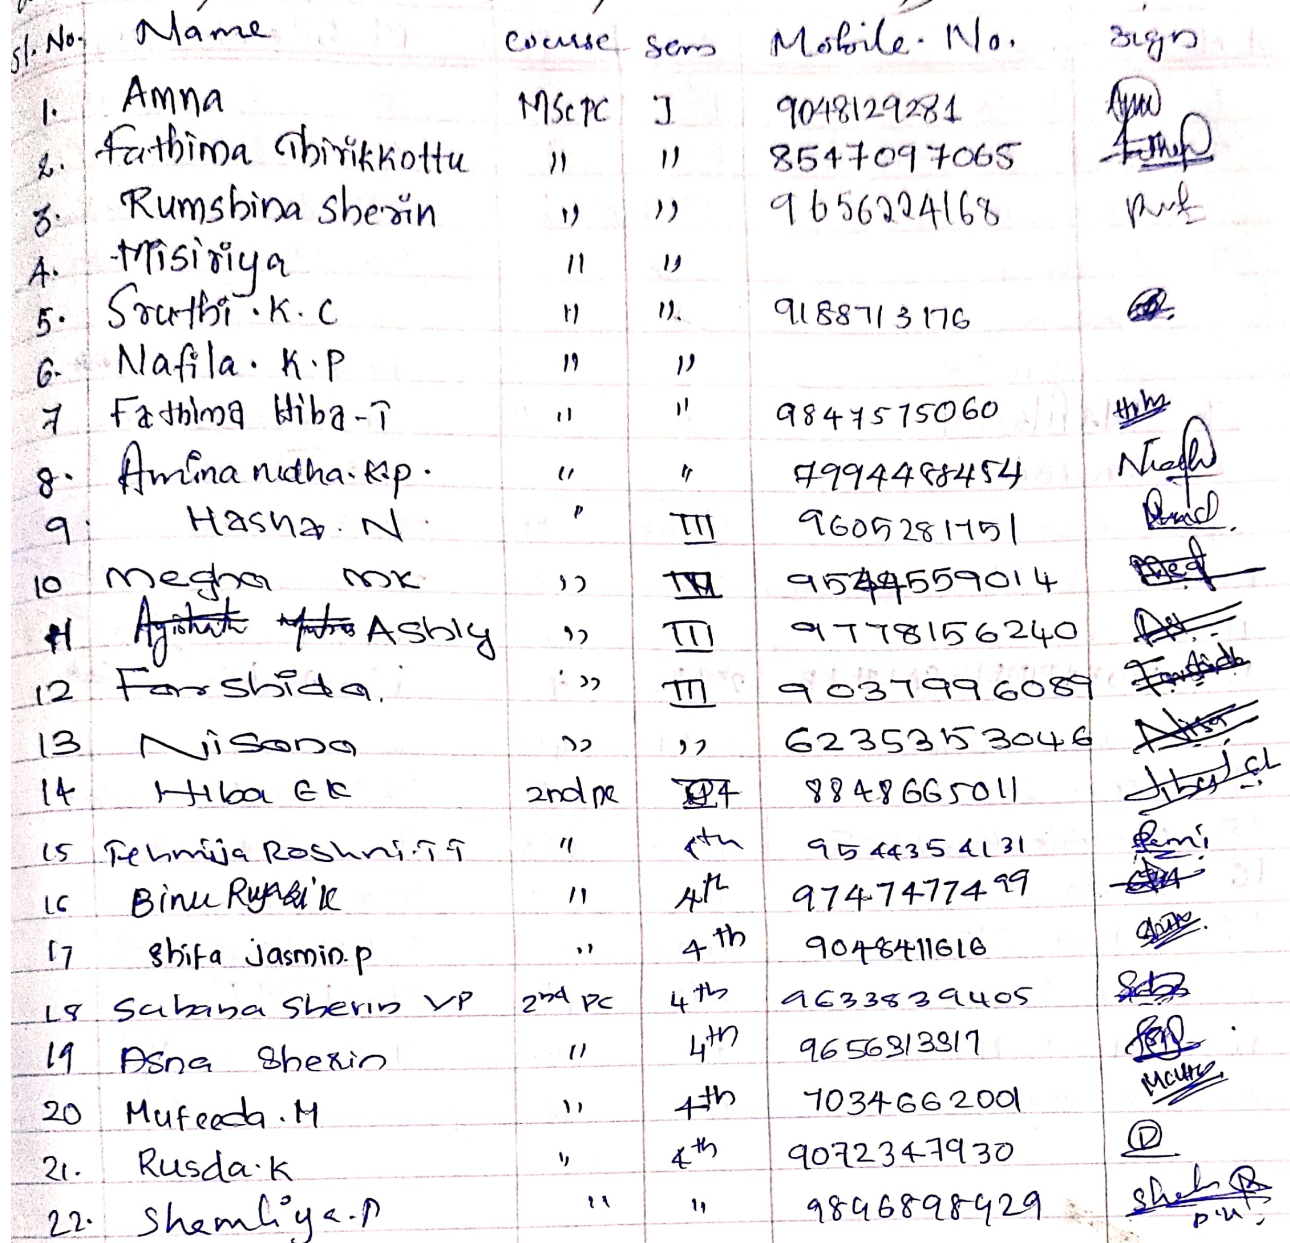 Sl. No. Name Course Sem Mobile. No. Sign
1. Amna MSc PC I 9048129281
2. Fathima Thirikkottu " " 8547097065
3. Rumshina Sherin " " 9656224168
4. Misiriya " "
5. Sruthi . K. C " ". 9188713176
6. Nafila. K.P " "
7 Fathima Hiba-T " " 9847575060
8. Amina nidha. K.p. " " 7994488454
9. Hasna. N. " III 9605281751
10 Megha MK " III 9544559014
11 Ashly " III 9778156240
12 Farshida. " III 9037996089
13 Nisana " " 6235353046
14 Hiba EK 2nd pc 4 8848665011
15 Tehmija Roshni.TT " 4th 9544354131
16 Binu " 4th 9747477499
17 Shifa Jasmin.p " 4th 9048411616
18 Sabana Sherin VP 2nd PC 4th 9633839405
19 Asna Sherin " 4th 9656313317
20 Mufeeda.M " 4th 7034662001
21. Rusda.K " 4th 9072347930
22. Shamliya.P " " 9846898929